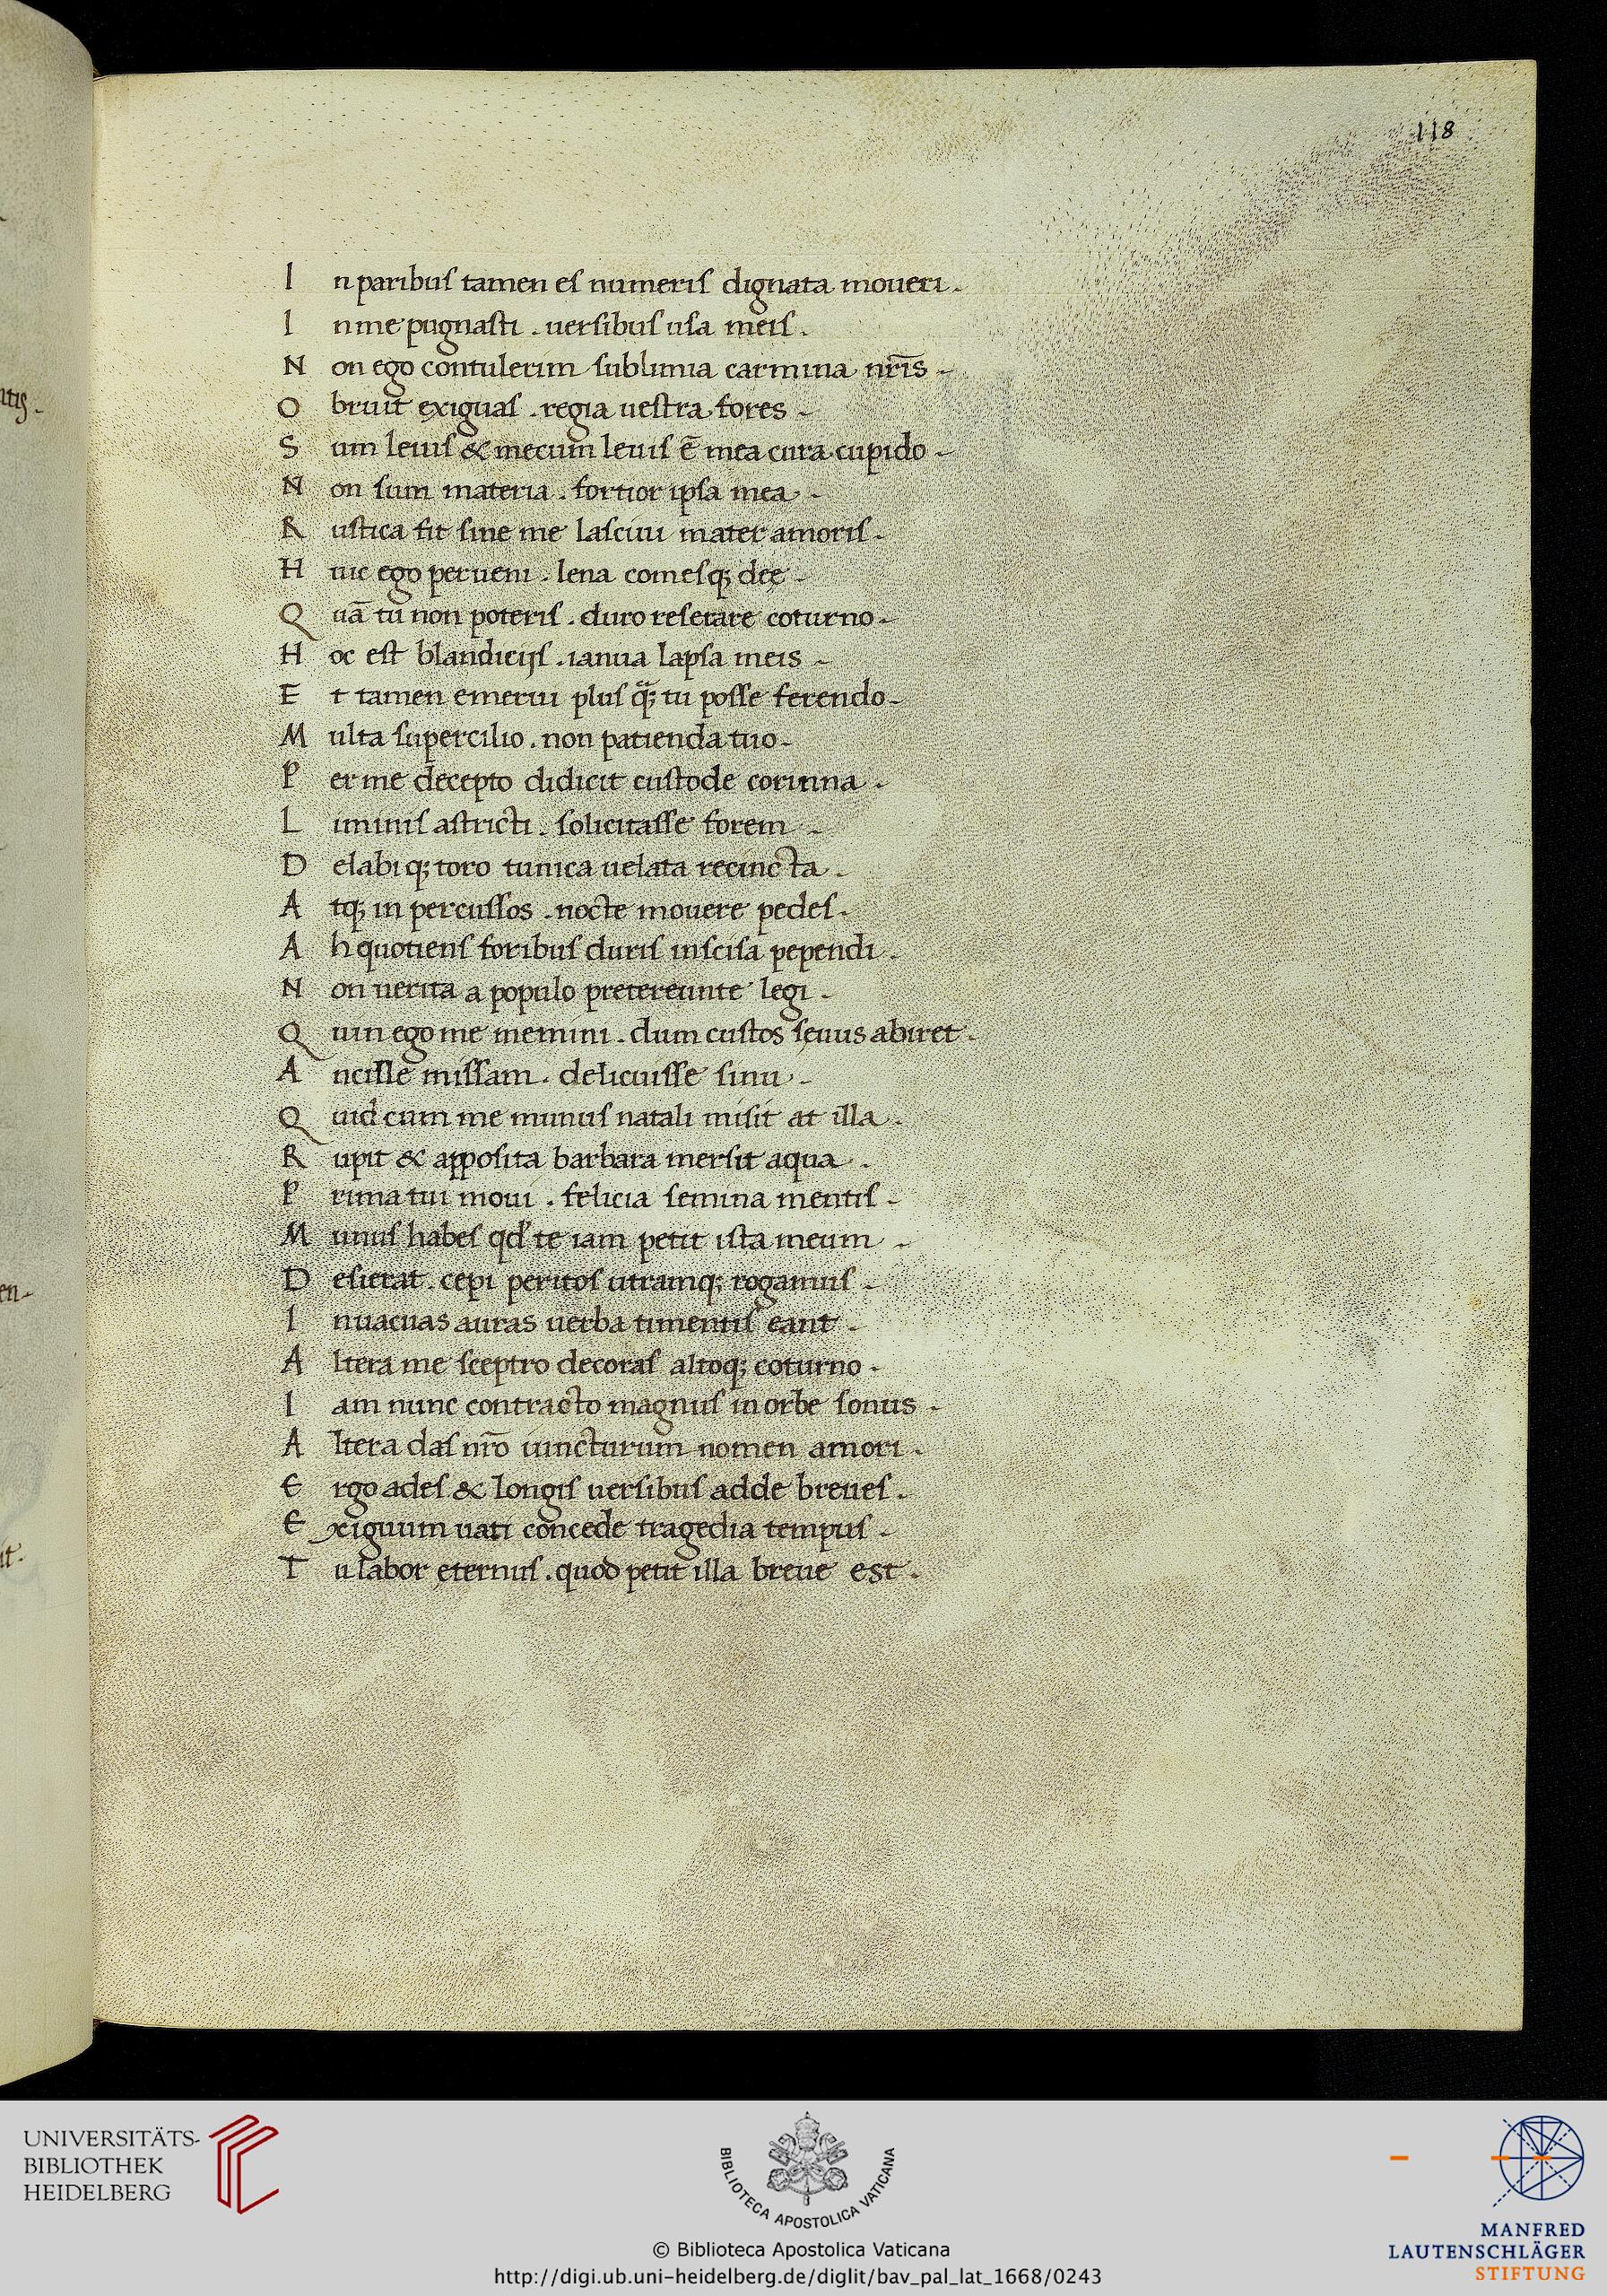 118
I n paribus tamen es numeris dignata moueri.
I n me pugnasti. uersibus usa meis.
N on ego contulerim sublimia carmina nr̄is
O bruit exiguas. regia uestra fores
S um leuis & mecum leuis ē mea cura cupido
N on sum materia. fortior ipsa mea
R ustica fit sine me lasciui mater amoris.
H uic ego perueni. lena comesq; deę
Q uā tu non poteris. duro reserare coturno
H oc est blandicijs. ianua lapsa meis
E t tamen emerui plus q̃; tu posse ferendo
M ulta supercilio. non patienda tuo
P er me decepto didicit custode corinna.
L iminis astricti. solicitasse forem
D elabiq; toro tunica uelata recincta.
A tq; in percussos. nocte mouere pedes.
A h quotiens foribus duris inscisa pependi.
N on uerita a populo pretereunte legi.
Q uin ego me memini. dum custos sęuus abiret.
A ncille missam. delicuisse sinu.
Q uid cum me munus natali misit at illa.
R upit & apposita barbara mersit aqua.
P rima tui moui. felicia semina mentis
M unus habes qd' te iam petit ista meum
D esierat. cepi peritos utramq; rogamus
I n uacuas auras uerba timentis eant
A ltera me sceptro decoras altoq; coturno
I am nunc contracto magnus in orbe sonus
A ltera das nr̄o uincturum nomen amori.
E rgo ades & longis uersibus adde breues.
E xiguum uati concede tragedia tempus
T u labor ęternus. quod petit illa breue est.
ntis.
en
it.
UNIVERSITÄTS-
BIBLIOTHEK
HEIDELBERG
BIBLIOTECA APOSTOLICA VATICANA
© Biblioteca Apostolica Vaticana
http://digi.ub.uni-heidelberg.de/diglit/bav_pal_lat_1668/0243
MANFRED
LAUTENSCHLÄGER
STIFTUNG